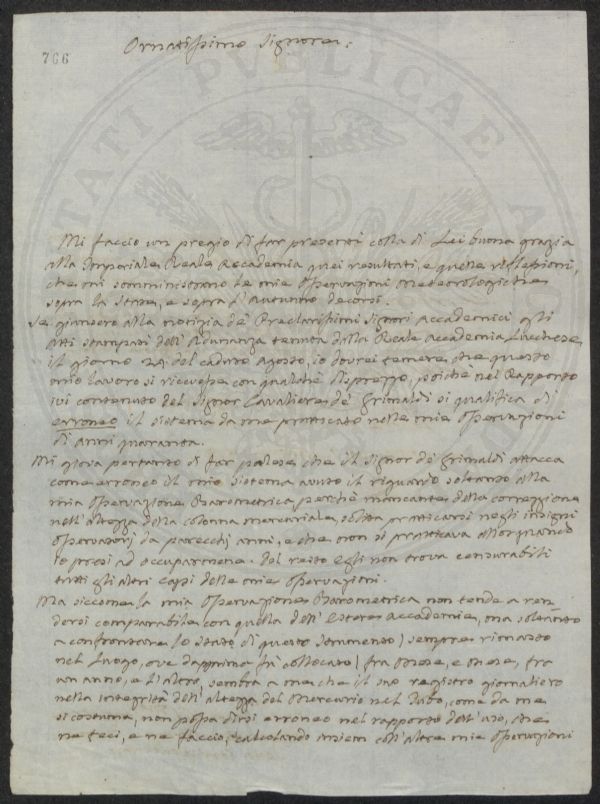 766
Ornatissimo Signore.
Mi faccio un pregio di far presenti colla di Lei buona grazia
alla Imperiale Reale Accademia quei resultati, e quelle riflessioni,
che mi somministrano le mie Osservazioni Meteorologiche
sopra la State, e sopra l'Autunno decorsi.
Se giunsero alla notizia de' Preclarissimi Signori Accademici gli
Atti stampati dell'Adunanza tenuta dalla Reale Accademia Lucchese
il giorno 24 del caduto Agosto, io dovrei temere che questo
mio lavoro si ricevesse con qualche disprezzo, poichè nel Rapporto
ivi contenuto del Signor Cavaliere de' Grimaldi si qualifica di
erroneo il sistema da me praticato nelle mie Osservazioni
di anni quaranta.
Mi giova pertanto di far palese che il Signor de' Grimaldi attacca
come erroneo il mio sistema avuto il riguardo soltanto alla
mia Osservazione Barometrica, perchè mancante della correzione
nell'altezza della colonna mercuriale, solita pratticarsi negli insigni
Osservatorj da parecchi anni, e che non si pratticava allorquando
io presi ad occuparmene. Del resto egli non trova censurabili
tutti gli altri capi delle mie Osservazioni.
Ma siccome la mia Osservazione Barometrica non tende a ren-
dersi comparabile con quella dell'Estere Accademie, ma soltanto
a confrontare lo stato di questo Strumento (sempre rimasto
nel luogo, ove dapprima fu collocato) fra Mese, e Mese, fra
un anno, e l'altro, sembra a me che il suo registro giornaliero
nella integrità dell'altezza del Mercurio nel Tubo, come da me
si costuma, non possa dirsi erroneo nel rapporto dell'uso, che
ne feci, e ne faccio, calcolando insiem coll'altre mie Osservazioni
STATI PVBLICAE